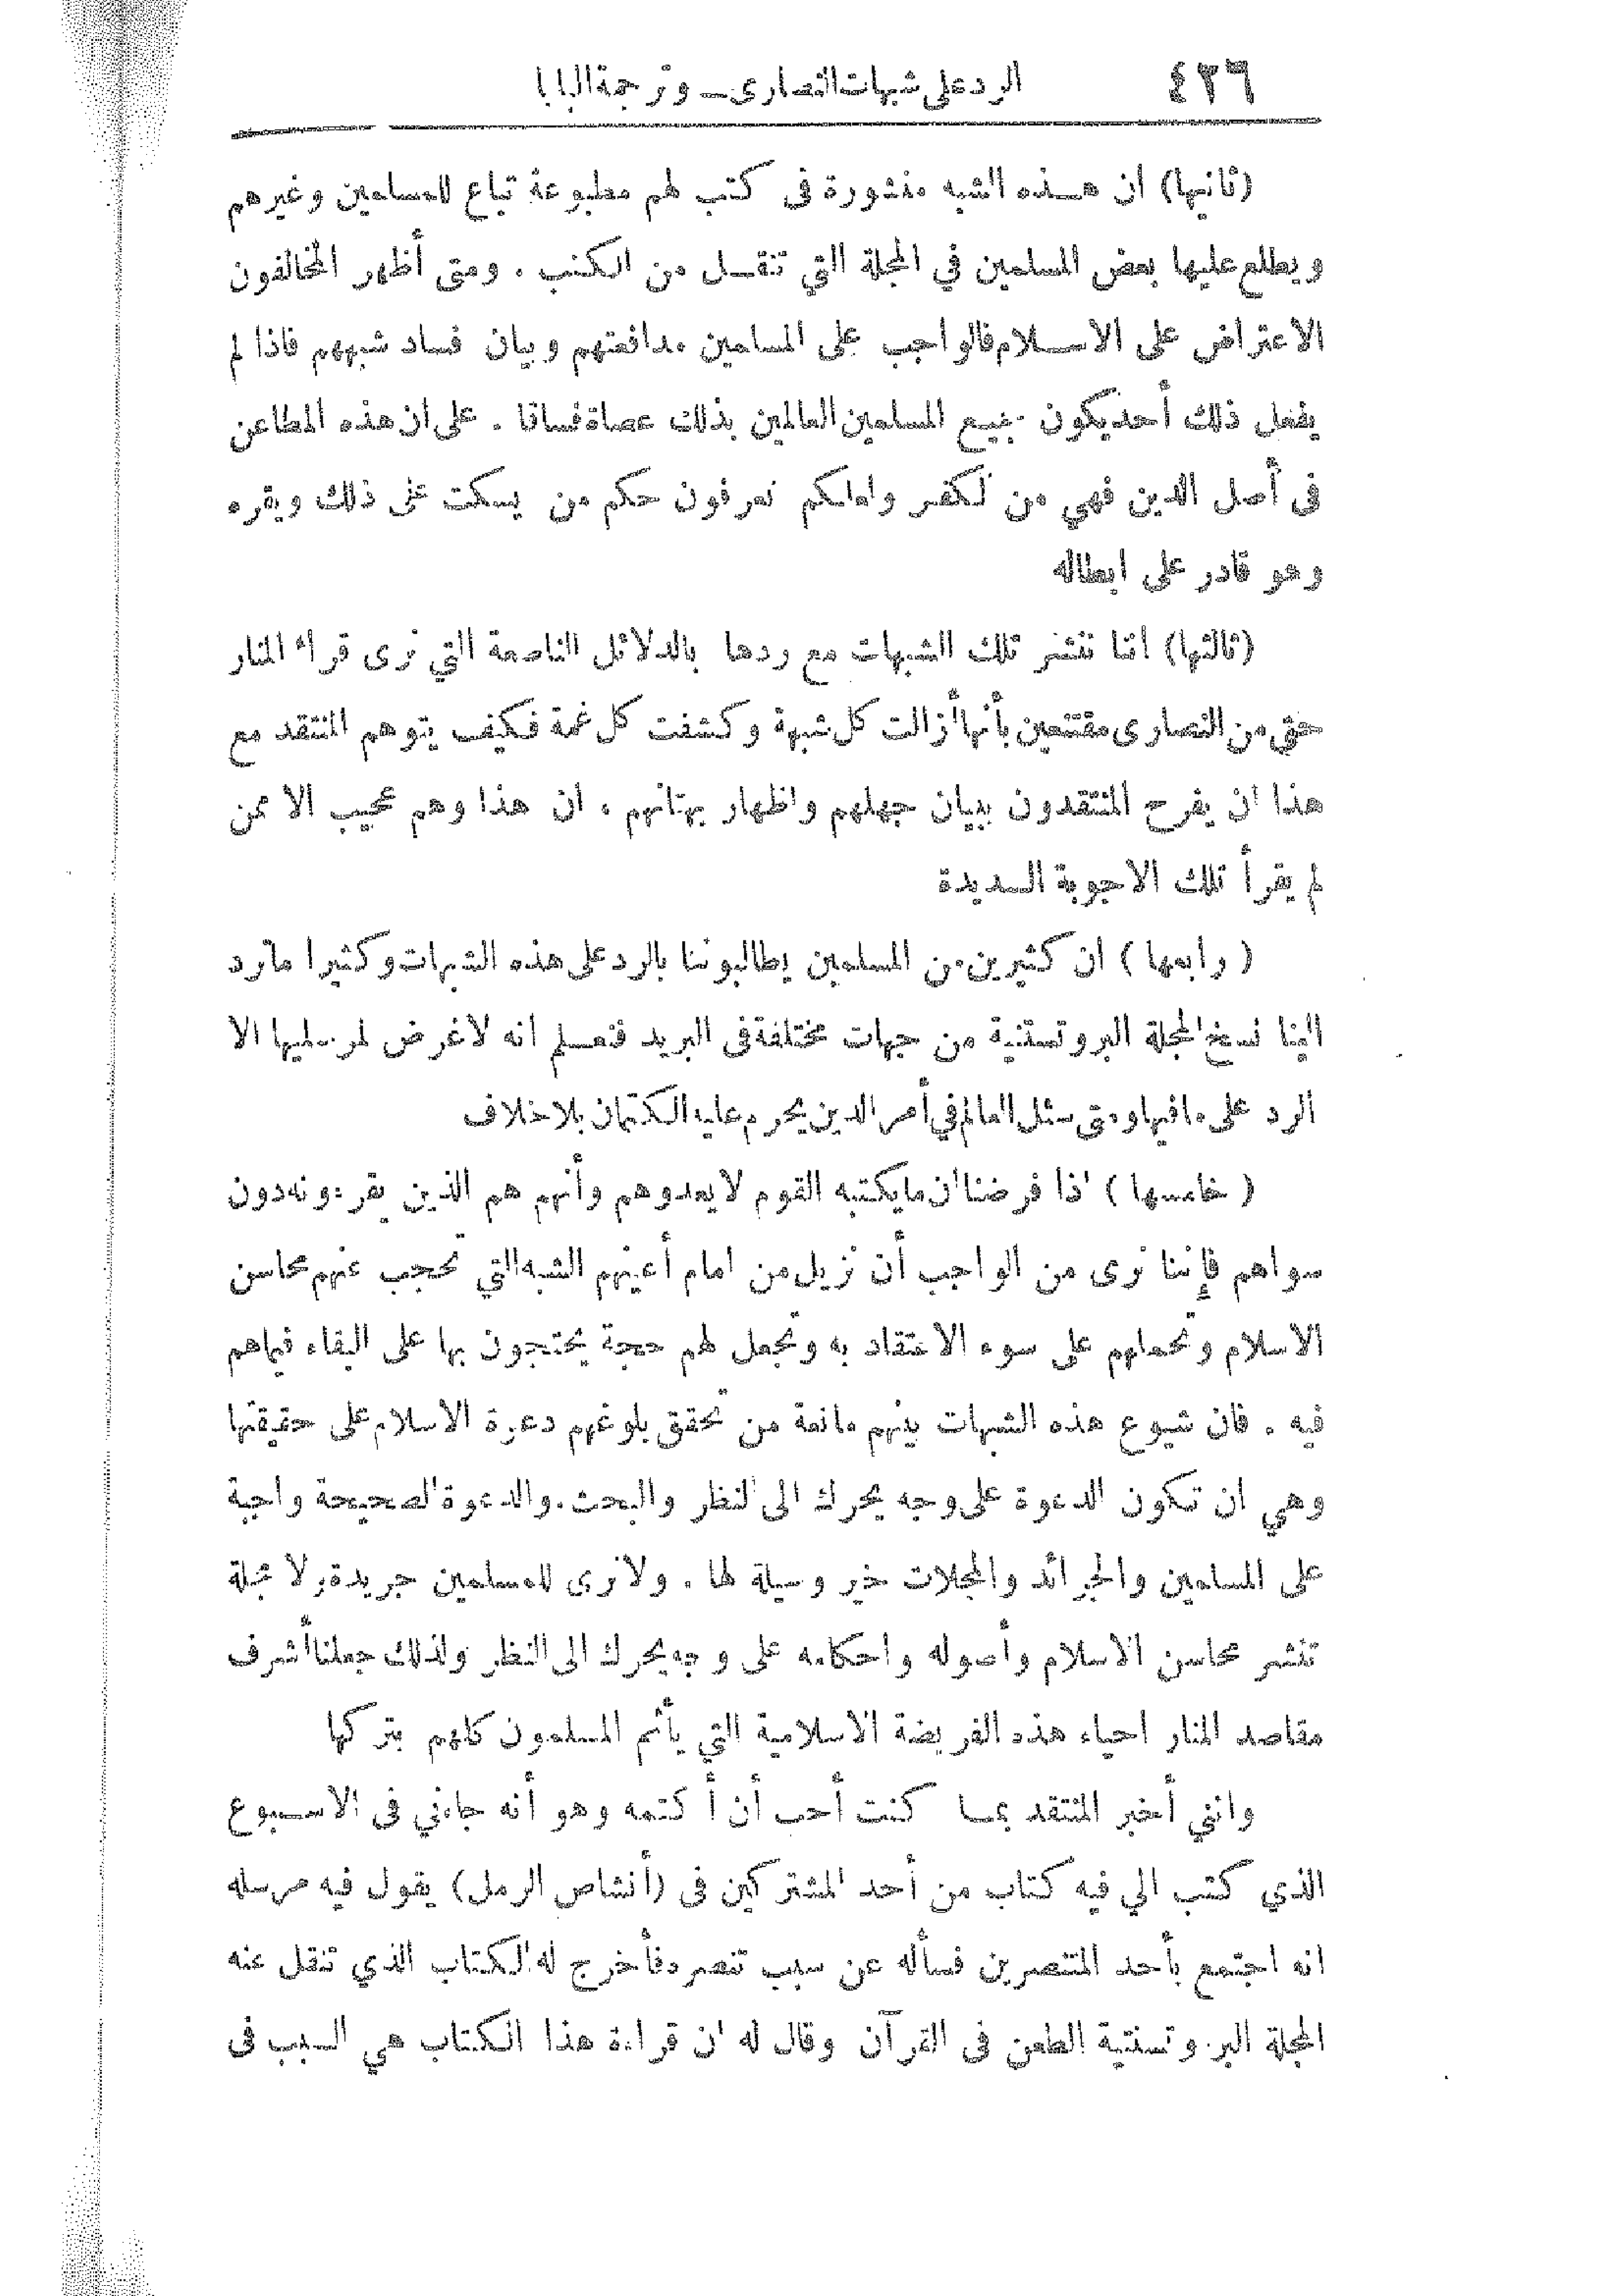 ٤٢٦ الرد على شبهات النصارى ــ وترجمة البابا
(ثانيها) ان هـذه الشبه منشورة فى كتب لهم مطبوعة تباع للمسلمين وغيرهم
ويطلع عليها بعض المسلمين في المجلة التي تنقـل من الكتب . ومتى أظهر المخالفون
الاعتراض على الاسـلام فالواجب على المسلمين مدافعتهم وبيان فساد شبههم فاذا لم
يفعل ذلك أحد يكون جميع المسلمين العالمين بذلك عصاة فساقا . على ان هذه المطاعن
فى أصل الدين فهي من الكفر ولعلكم تعرفون حكم من يسكت على ذلك ويقره
وهو قادر على ابطاله
(ثالثها) اننا ننشر تلك الشبهات مع ردها بالدلائل الناصعة التي نرى قراء المنار
حتى من النصارى مقتنعين بأنها أزالت كل شبهة وكشفت كل غمة فكيف يتوهم المنتقد مع
هذا ان يفرح المنتقدون ببيان جهلهم واظهار بهتانهم ، ان هذا وهم عجيب الا ممن
لم يقرأ تلك الاجوبة السديدة
( رابعها ) ان كثيرين من المسلمين يطالبوننا بالرد على هذه الشبهات وكثيرا ما ترد
الينا نسخ المجلة البروتستنية من جهات مختلفة فى البريد فنعـلم انه لا غرض لمرسليها الا
الرد على ما فيها ومتى سئل العالم في أمر الدين يحرم عليه الكتمان بلا خلاف
( خامسها ) اذا فرضنا ان ما يكتبه القوم لا يعدوهم وأنهم هم الذين يقرءونه دون
سواهم فإننا نرى من الواجب أن نزيل من امام أعينهم الشبه التي تحجب عنهم محاسن
الاسلام وتحملهم على سوء الاعتقاد به وتجعل لهم حجة يحتجون بها على البقاء فيما هم
فيه . فان شيوع هذه الشبهات بينهم مانعة من تحقق بلوغهم دعوة الاسلام على حقيقتها
وهي ان تكون الدعوة على وجه يحرك الى النظر والبحث . والدعوة الصحيحة واجبة
على المسلمين والجرائد والمجلات خير وسيلة لها . ولا نرى للمسلمين جريدة ولا مجلة
تنشر محاسن الاسلام وأصوله واحكامه على وجه يحرك الى النظر ولذلك جعلنا أشرف
مقاصد المنار احياء هذه الفريضة الاسلامية التي يأثم المسلمون كلهم بتركها
وانني أخبر المنتقد بمـا كنت أحب أن أكتمه وهو أنه جاءني فى الاسـبوع
الذي كتب الي فيه كتاب من أحد المشتركين فى (أنشاص الرمل) يقول فيه مرسله
انه اجتمع بأحد المتنصرين فسأله عن سبب تنصره فأخرج له الكتاب الذي تنقل عنه
المجلة البروتستنتية الطعن فى القرآن وقال له ان قراءة هذا الكتاب هي السبب فى